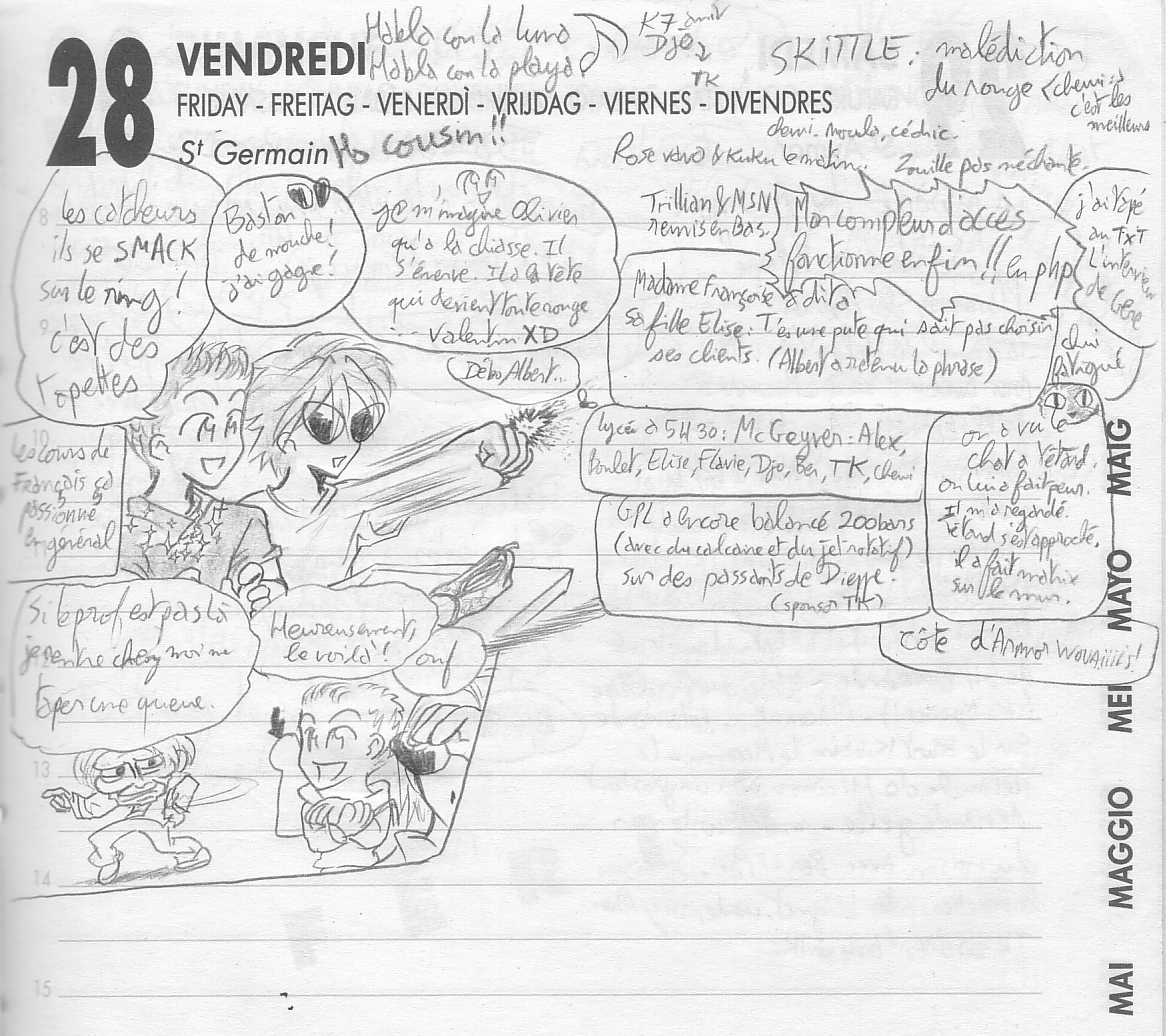 28
VENDREDI
FRIDAY - FREITAG - VENERDÌ - VRIJDAG - VIERNES - DIVENDRES
St Germain
Habla con la luna
Habla con la playa
Ho cousin!!
K7
Djo
TK
SKiTTLE : malédiction
du rouge
c'est les
meilleurs
cédric.
Rose le matin.
Zouille pas méchante.
les catcheurs
ils se SMACK
sur le ring !
c'est des
tapettes
Baston
de mouche!
j'ai gagné!
je m'imagine Olivier
qu'a la chiasse. Il
s'énerve. Il a la tête
qui devient toute rouge
... Valentin XD
Débo, Albert...
Trillian & MSN
remis en Bas.
Mon compteur d'accès
fonctionne enfin!! en php
j'ai tapé
au TXT
L'interview
de Gène
fatigué
Madame Françoise a dit à
sa fille Elise: T'es une pute qui sait pas choisir
ses clients. (Albert a retenu la phrase)
lycée à 5H30: McGeyver: Alex,
Boulet, Elise, Flavie, Djo, Ben, TK, chemi
on a vu le
chat à Tétard.
on lui a fait peur.
Il m'a regardé.
Tétard s'est approché,
il a fait matrix
sur le mur.
GPL a encore balancé 200bars
(avec du calcaire et du jet rotatif)
sur des passants de Dieppe.
(sponsor TK)
côte d'Armor WOUAiiiis!
les cours de
François ça
passionne
en général
Si le prof est pas là
je rentre chez moi me
taper une queue.
Heureusement,
le voilà!
ouf
8
9
10
13
14
15
MAI MAGGIO MEI MAYO MAIG